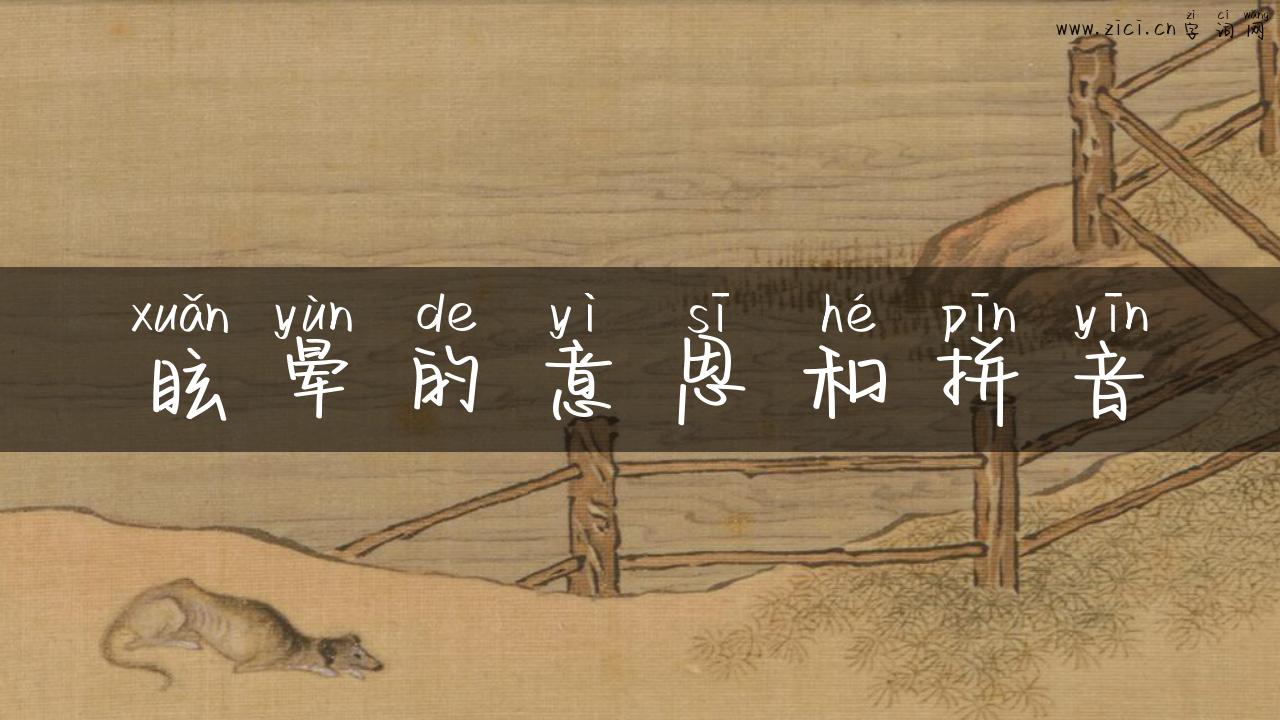 zì cí wǎng
www.zici.cn字词网
xuǎn yùn de yì sī hé pīn yīn
眩晕的意思和拼音